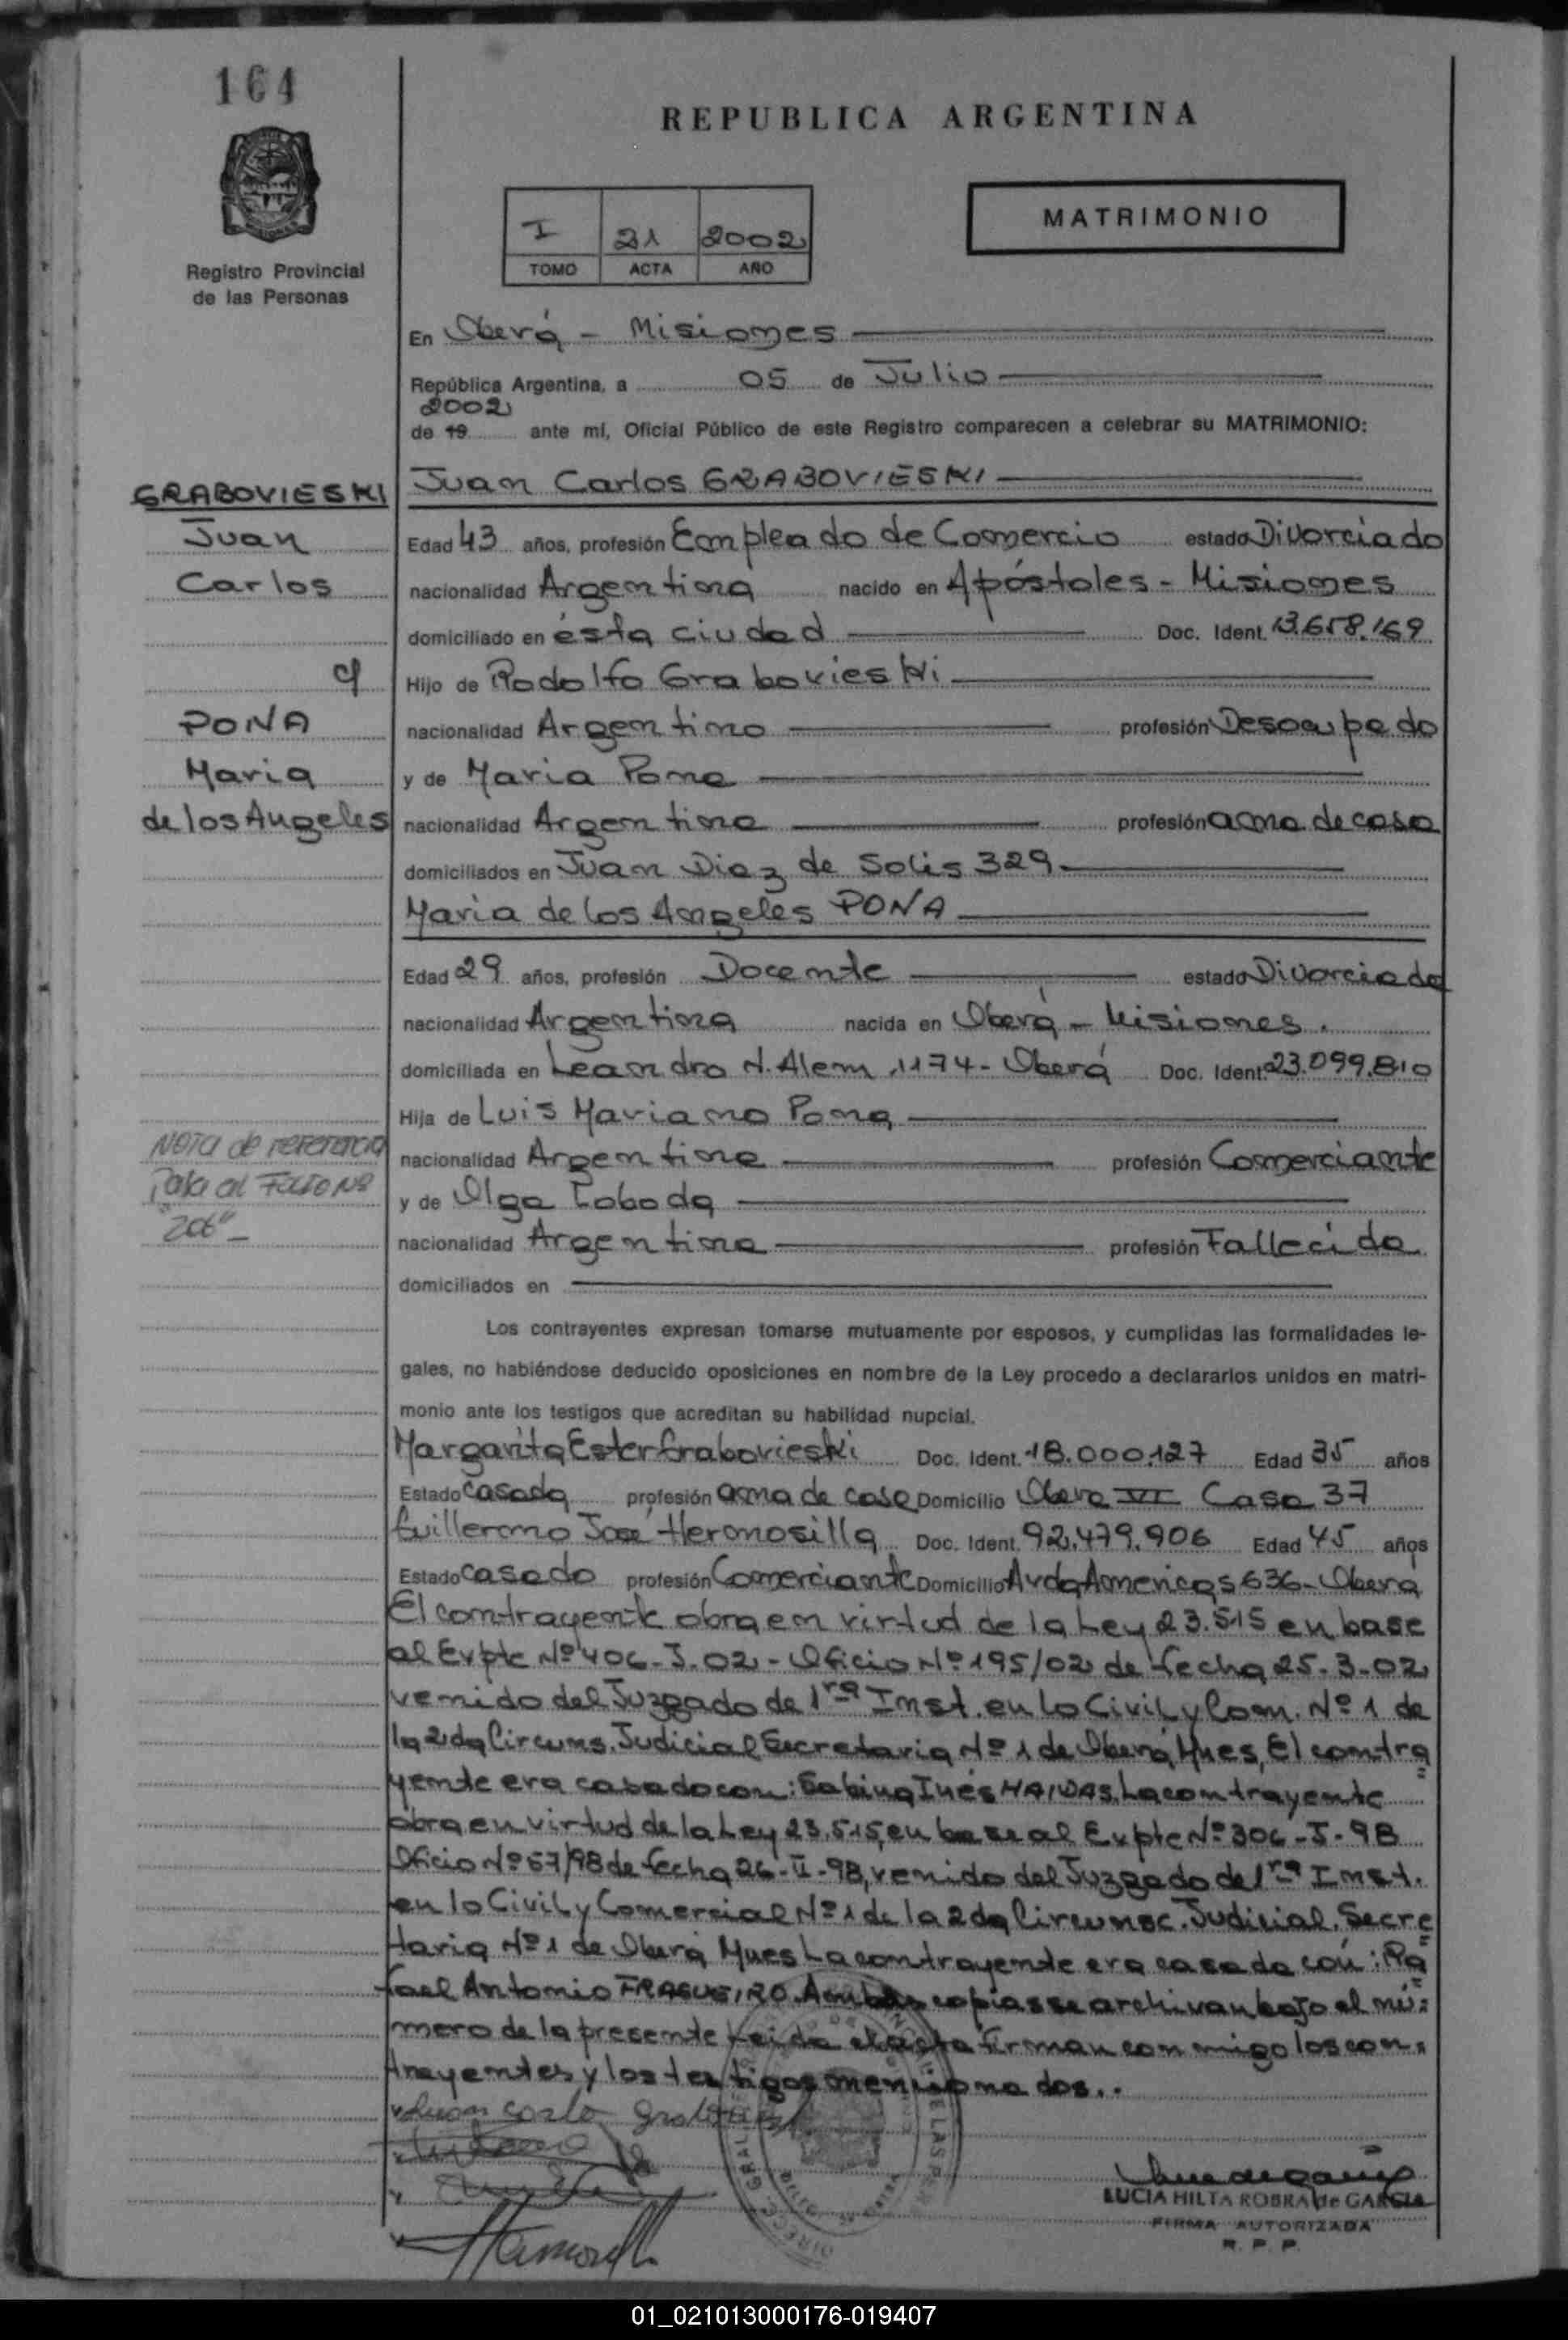 164
REPUBLICA ARGENTINA
Registro Provincial
de las Personas
I 21 2002
TOMO ACTA AÑO
MATRIMONIO
En Oberá - Misiones
República Argentina, a 05 de Julio
2002
de 19 ante mí, Oficial Público de este Registro comparecen a celebrar su MATRIMONIO:
GRABOVIESKI
Juan
Carlos
c/
PONA
Maria
de los Angeles
Juan Carlos GRABOVIESKI
Edad 43 años, profesión Empleado de Comercio estado Divorciado
nacionalidad Argentina nacido en Apóstoles - Misiones
domiciliado en ésta ciudad Doc. Ident. 13.658.169
Hijo de Rodolfo Grabovieski
nacionalidad Argentino profesión Desocupado
y de Maria Pona
nacionalidad Argentina profesión ama de casa
domiciliados en Juan Diaz de Solis 329
Maria de los Angeles PONA
Edad 29 años, profesión Docente estado Divorciada
nacionalidad Argentina nacida en Oberá - Misiones.
domiciliada en Leandro N. Alem 1174 - Oberá Doc. Ident. 23.099.810
Hija de Luis Mariano Pona
nacionalidad Argentina profesión Comerciante
y de Olga Loboda
nacionalidad Argentina profesión Fallecida
domiciliados en
NOTA de referencia
Pasa al FOLIO Nº
"206" -
Los contrayentes expresan tomarse mutuamente por esposos, y cumplidas las formalidades le-
gales, no habiéndose deducido oposiciones en nombre de la Ley procedo a declararlos unidos en matri-
monio ante los testigos que acreditan su habilidad nupcial.
Margarita Ester Grabovieski Doc. Ident. 18.000.127 Edad 35 años
Estado Casada profesión ama de casa Domicilio Obera VI Casa 37
Guillermo José Hermosilla Doc. Ident. 92.479.906 Edad 45 años
Estado Casado profesión Comerciante Domicilio Avda Americas 636 - Oberá
El contrayente obra en virtud de la Ley 23.515 en base
al Expte Nº 406-J.02 - Oficio Nº 195/02 de fecha 25-3-02
venido del Juzgado de 1ra Inst. en lo Civil y Com. Nº 1 de
la 2da Circuns. Judicial Secretaria Nº 1 de Oberá, Mnes, El contra
yente era casado con: Sabina Inés HAIDAS. La contrayente
obra en virtud de la Ley 23.515, en base al Expte Nº 306-J-98
Oficio Nº 57/98 de fecha 26-II-98, venido del Juzgado de 1ra Inst.
en lo Civil y Comercial Nº 1 de la 2da Circunsc. Judicial. Secre
taria Nº 1 de Oberá Mnes La contrayente era casada con: Ra
fael Antonio FRAGUEIRO. Ambas copias se archivan bajo el nú=
mero de la presente Leida el acta firman conmigo los con=
trayentes y los testigos mencionados..
Juan Carlo
LUCIA HILTA ROBRA de GARCIA
FIRMA AUTORIZADA
R. P. P.
01_021013000176-019407